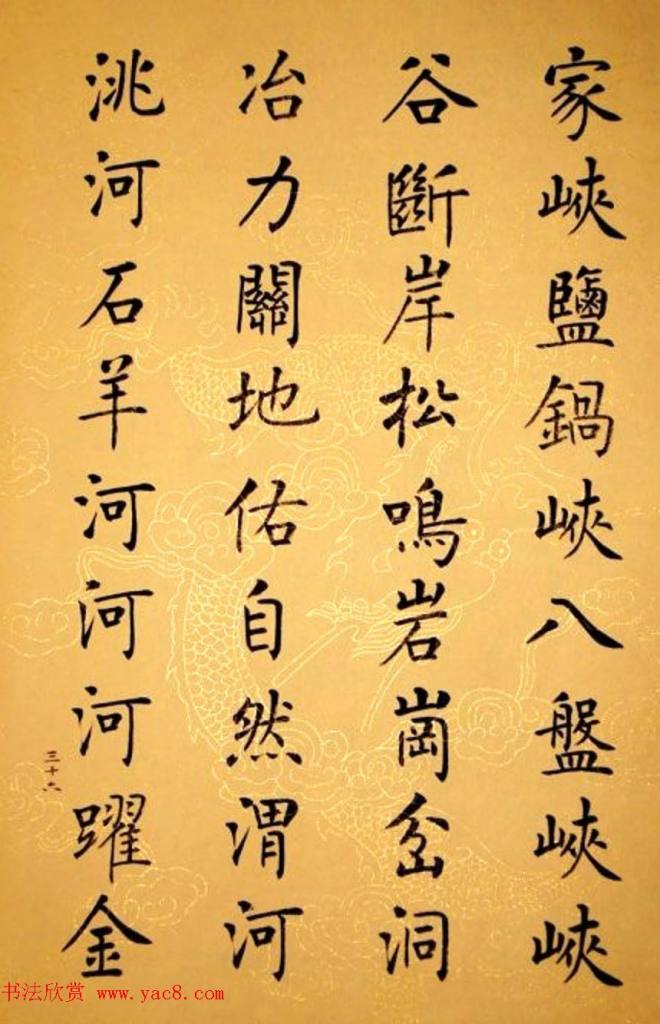 家峽鹽鍋峽八盤峽峽
谷斷岸松鳴岩崗岔洞
冶力關地佑自然渭河
洮河石羊河河河躍金
三十六
书法欣赏 www.yac8.com